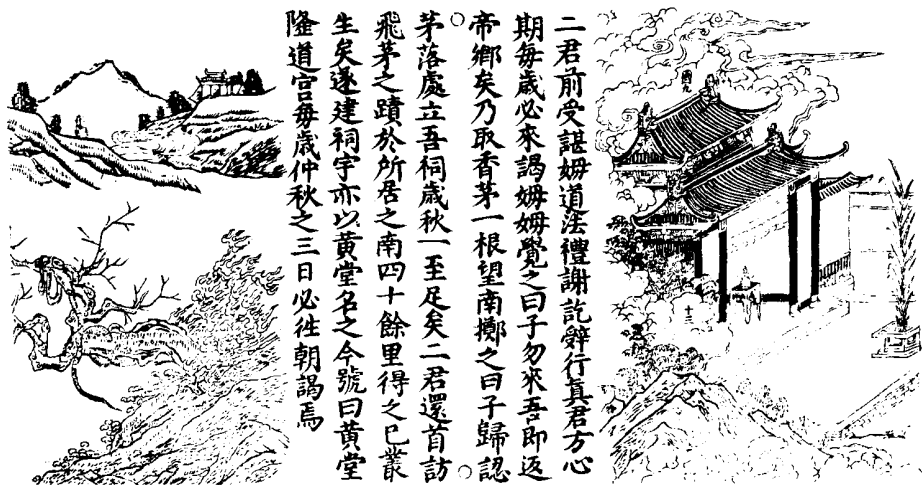 二君前受諶姆道法禮謝訖辭行真君方心
期每歲必來謁姆姆覺之曰子勿來吾即返
帝鄉矣乃取香茅一根望南擲之曰子歸認
茅落處立吾祠歲秋一至足矣二君還首訪
飛茅之蹟於所居之南四十餘里得之已叢
生矣遂建祠宇亦以黃堂名之今號曰黃堂
隆道宮每歲仲秋之三日必徃朝謁焉
十三